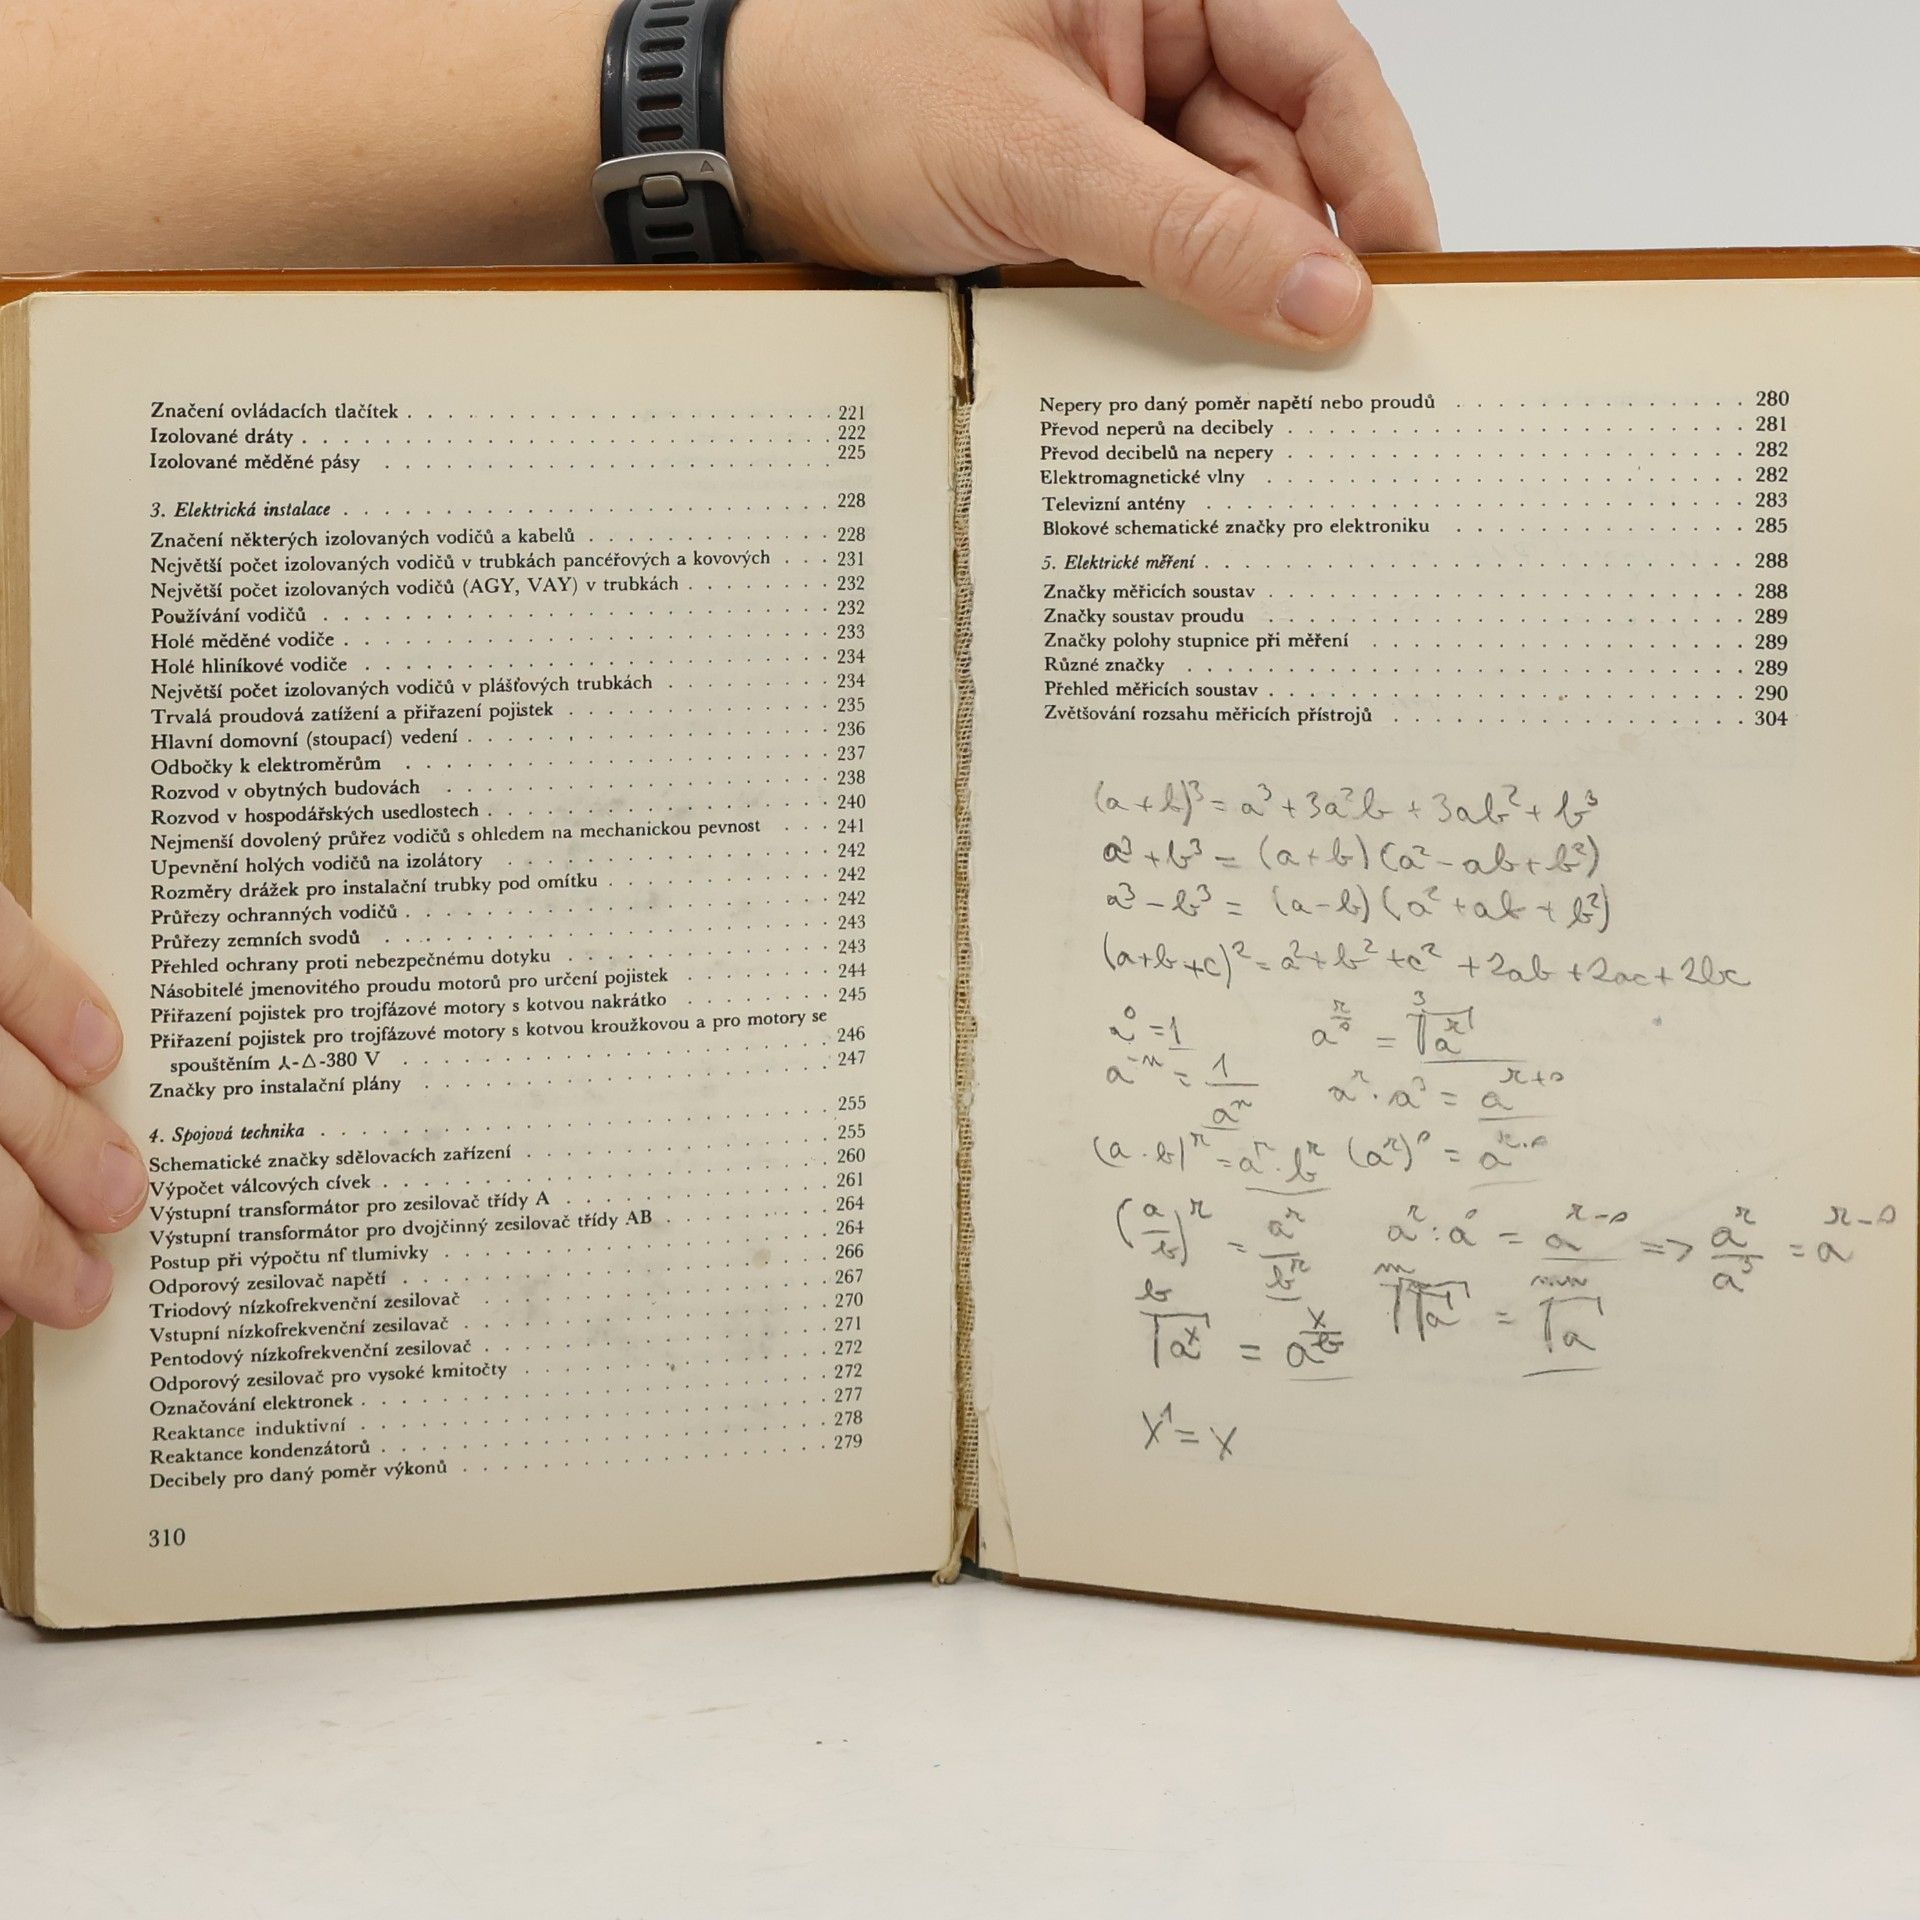 Značení ovládacích tlačítek . . . . . . . . . . . . . . . . . . . . 221
Izolované dráty . . . . . . . . . . . . . . . . . . . . 222
Izolované měděné pásy . . . . . . . . . . . . . . . . . . . . 225
3. Elektrická instalace . . . . . . . . . . . . . . . . . . . . 228
Značení některých izolovaných vodičů a kabelů . . . . . . . . . . 228
Největší počet izolovaných vodičů v trubkách pancéřových a kovových . . . 231
Největší počet izolovaných vodičů (AGY, VAY) v trubkách . . . . . . 232
Používání vodičů . . . . . . . . . . . . . . . . . . . . 232
Holé měděné vodiče . . . . . . . . . . . . . . . . . . . . 233
Holé hliníkové vodiče . . . . . . . . . . . . . . . . . . . . 234
Největší počet izolovaných vodičů v plášťových trubkách . . . . . . . . 234
Trvalá proudová zatížení a přiřazení pojistek . . . . . . . . . . 235
Hlavní domovní (stoupací) vedení . . . . . . . . . . . . . . 236
Odbočky k elektroměrům . . . . . . . . . . . . . . . . 237
Rozvod v obytných budovách . . . . . . . . . . . . . . . 238
Rozvod v hospodářských usedlostech . . . . . . . . . . . . . 240
Nejmenší dovolený průřez vodičů s ohledem na mechanickou pevnost . . . 241
Upevnění holých vodičů na izolátory . . . . . . . . . . . . . 242
Rozměry drážek pro instalační trubky pod omítku . . . . . . . . . 242
Průřezy ochranných vodičů . . . . . . . . . . . . . . . . 242
Průřezy zemních svodů . . . . . . . . . . . . . . . . . 243
Přehled ochrany proti nebezpečnému dotyku . . . . . . . . . . 243
Násobitelé jmenovitého proudu motorů pro určení pojistek . . . . . . 244
Přiřazení pojistek pro trojfázové motory s kotvou nakrátko . . . . . . 245
Přiřazení pojistek pro trojfázové motory s kotvou kroužkovou a pro motory se
spouštěním ⅄-△-380 V . . . . . . . . . . . . . . . . 246
Značky pro instalační plány . . . . . . . . . . . . . . . 247
4. Spojová technika . . . . . . . . . . . . . . . . . . . 255
Schematické značky sdělovacích zařízení . . . . . . . . . . . . 255
Výpočet válcových cívek . . . . . . . . . . . . . . . . . 260
Výstupní transformátor pro zesilovač třídy A . . . . . . . . . . 261
Výstupní transformátor pro dvojčinný zesilovač třídy AB . . . . . . . 264
Postup při výpočtu nf tlumivky . . . . . . . . . . . . . . 264
Odporový zesilovač napětí . . . . . . . . . . . . . . . . 266
Triodový nízkofrekvenční zesilovač . . . . . . . . . . . . . 267
Vstupní nízkofrekvenční zesilovač . . . . . . . . . . . . . . 270
Pentodový nízkofrekvenční zesilovač . . . . . . . . . . . . . 271
Odporový zesilovač pro vysoké kmitočty . . . . . . . . . . . . 272
Označování elektronek . . . . . . . . . . . . . . . . . . 272
Reaktance induktivní . . . . . . . . . . . . . . . . . . 277
Reaktance kondenzátorů . . . . . . . . . . . . . . . . . 278
Decibely pro daný poměr výkonů . . . . . . . . . . . . . . 279
310
Nepery pro daný poměr napětí nebo proudů . . . . . . . . . . . 280
Převod neperů na decibely . . . . . . . . . . . . . . . . . 281
Převod decibelů na nepery . . . . . . . . . . . . . . . . . 282
Elektromagnetické vlny . . . . . . . . . . . . . . . . . . 282
Televizní antény . . . . . . . . . . . . . . . . . . . . 283
Blokové schematické značky pro elektroniku . . . . . . . . . . . 285
5. Elektrické měření . . . . . . . . . . . . . . . . . . . . 288
Značky měřicích soustav . . . . . . . . . . . . . . . . . . 288
Značky soustav proudu . . . . . . . . . . . . . . . . . . 289
Značky polohy stupnice při měření . . . . . . . . . . . . . . 289
Různé značky . . . . . . . . . . . . . . . . . . . . . 289
Přehled měřicích soustav . . . . . . . . . . . . . . . . . . 290
Zvětšování rozsahu měřicích přístrojů . . . . . . . . . . . . . 304
(a+b)³ = a³ + 3a²b + 3ab² + b³
a³ + b³ = (a+b) (a² - ab + b²)
a³ - b³ = (a-b) (a² + ab + b²)
(a+b+c)² = a² + b² + c² + 2ab + 2ac + 2bc
a⁰ = 1 a^(r/s) = ˢ√(a^r)
a^(-n) = 1/a^n a^r · a^s = a^(r+s)
(a · b)^r = a^r · b^r (a^r)^s = a^(r·s)
(a/b)^r = a^r/b^r a^r : a^s = a^(r-s) => a^r/a^s = a^(r-s)
ᵇ√(a^x) = a^(x/b) ᵐ√(√a) = ᵐ·ⁿ√a
x¹ = x